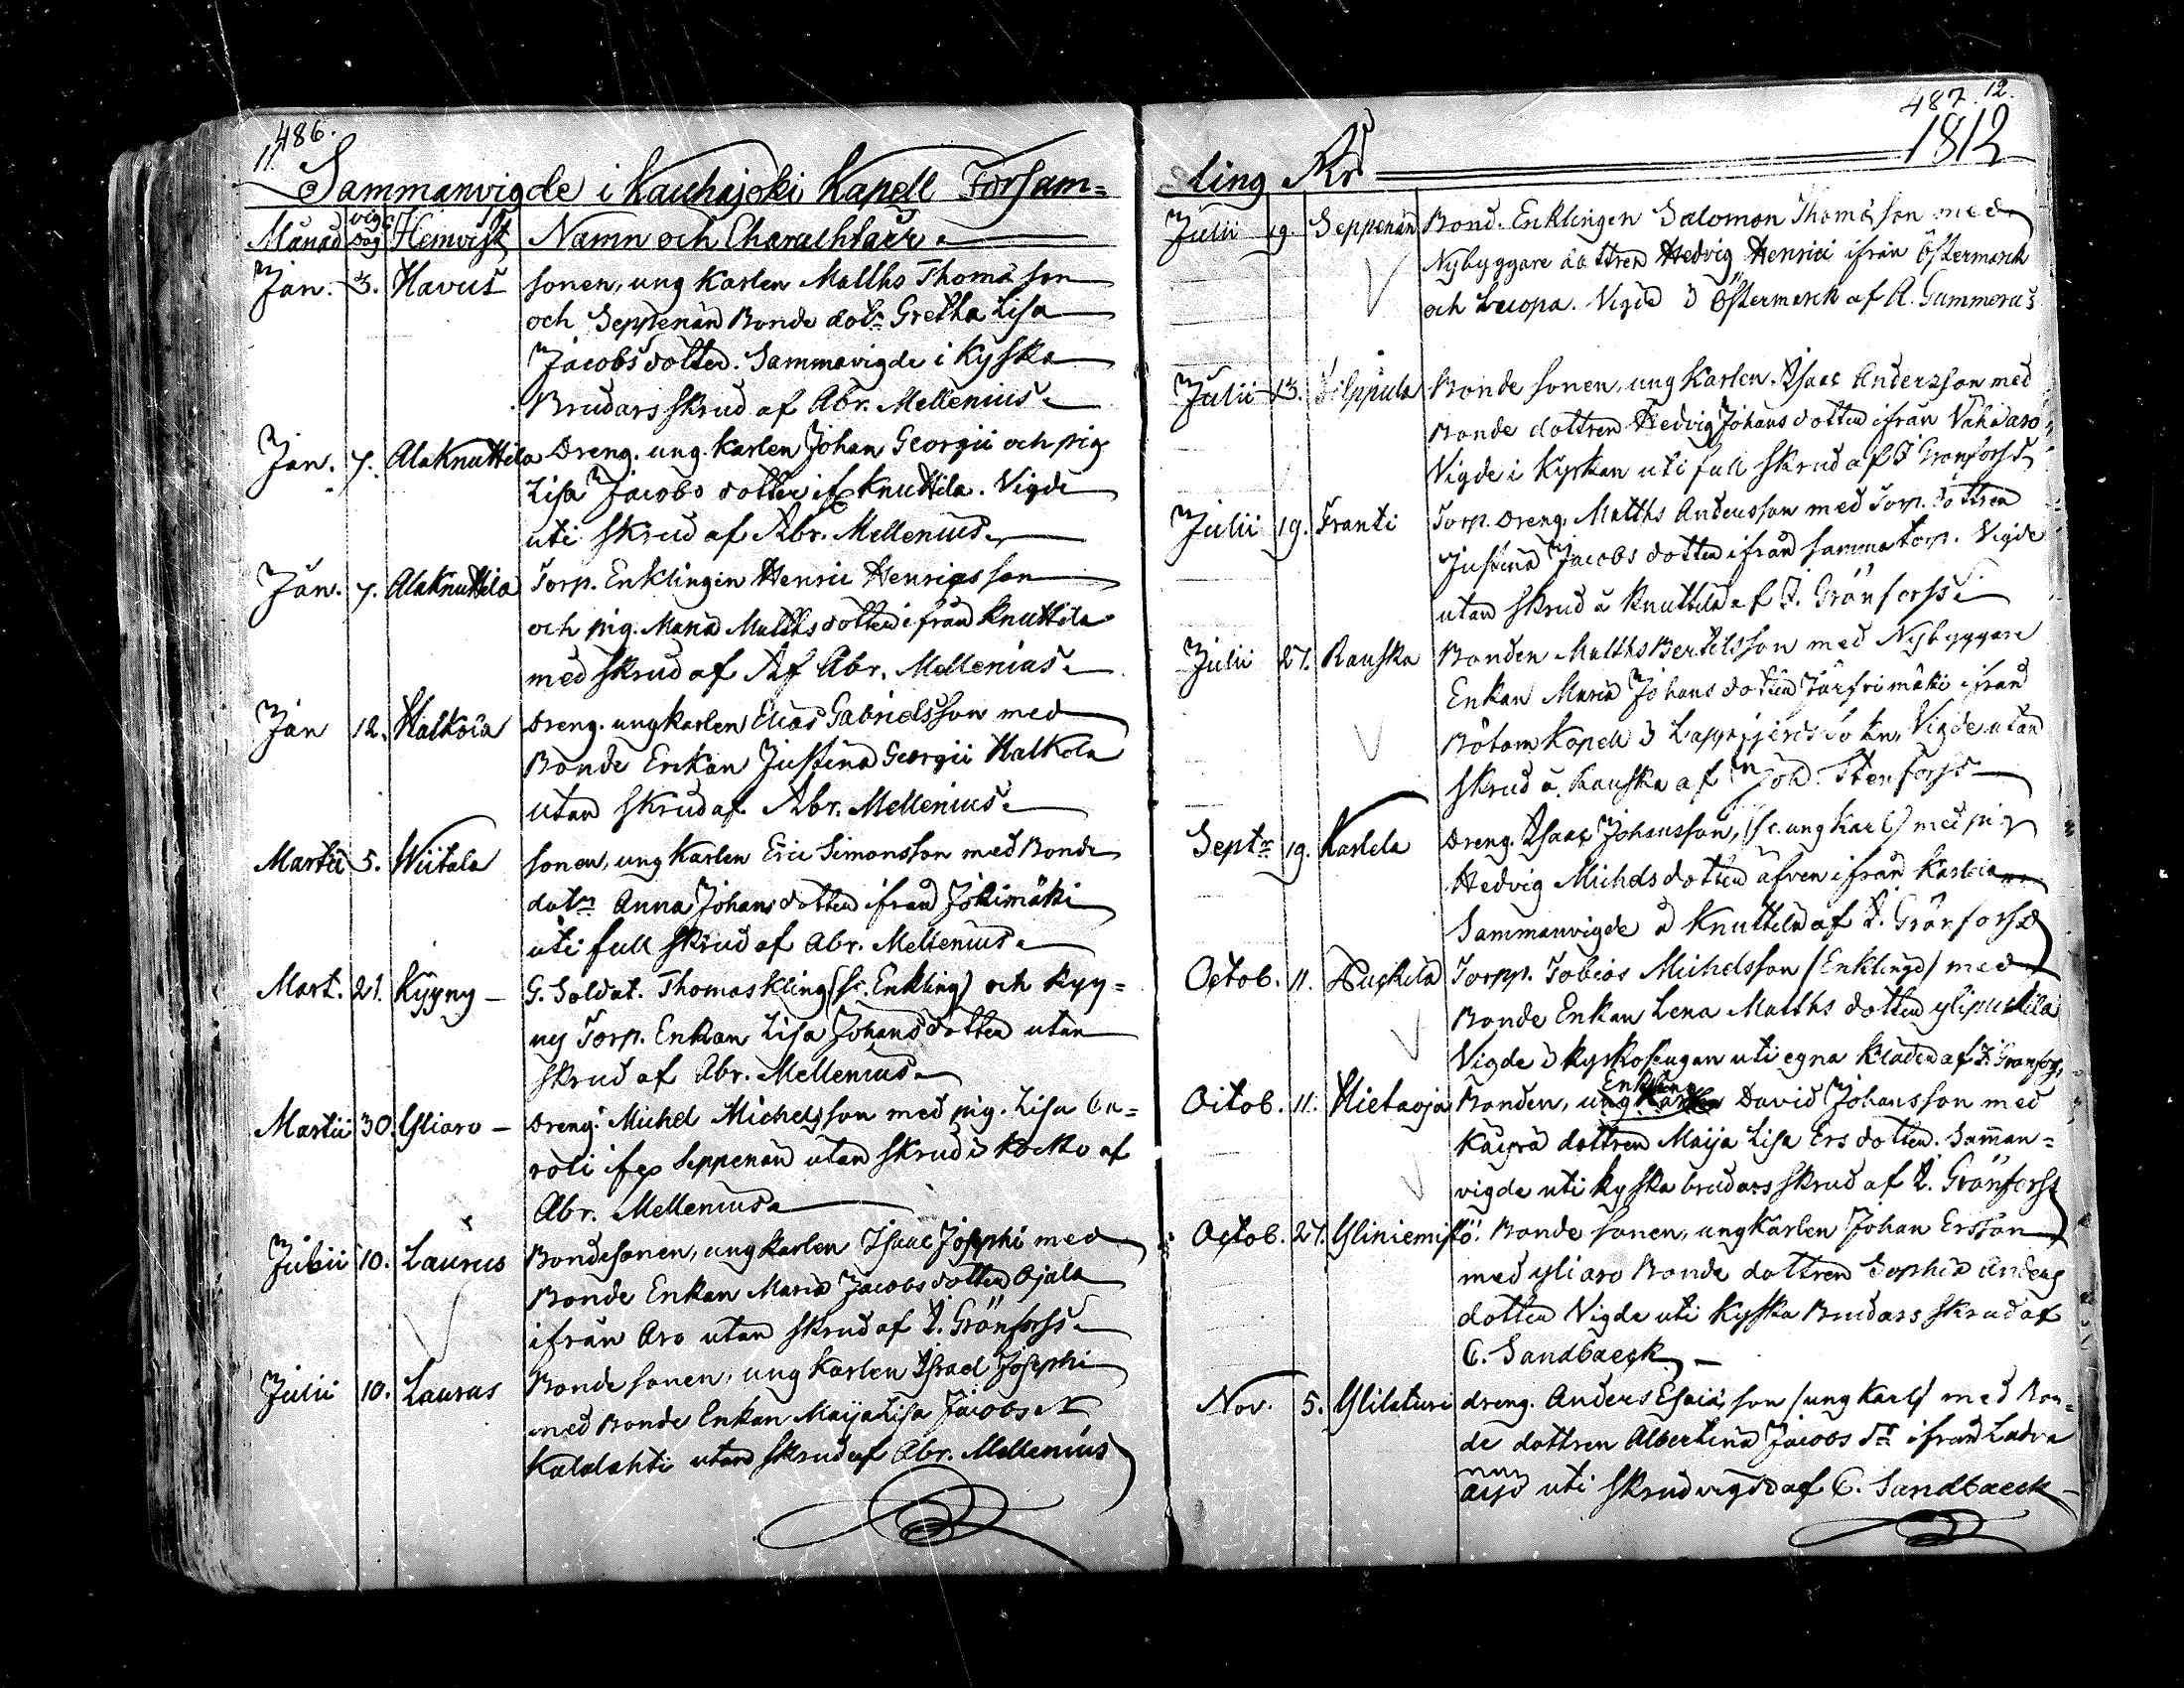 486.
11.
Sammanvigde i Kauhajoki Kapell Försam-
Månad vig dag Hemvist Namn och Charachtair
Jan. 3. Havus sonen, ung Karlen Matths Thomasson
och Seppenän Bonde dotr Gretha Lisa
Jacobsdotter. Sammavigde i Kyska
Brudars skrud af Abr. Mellenius
Jan. 7. AlaKnuttila Dreng. ung. Karlen Johan Georgii och pig.
Lisa Jacobs dotter if. Knuttila. Vigde
uti skrud af Abr. Mellenius
Jan. 7. AlaKnuttila Torp. Enklingen Henric Henricsson
och pig. Maria Matthsdotter ifrån Knuttila
med skrud af Af Abr. Mellenius
Jan 12. Halkola Dreng. ungkarlen Elias Gabrielsson med
Bonde Enkan Justina Georgii Halkola
utan skrud af Abr. Mellenius
Martii 5. Wiitala sonen, ung Karlen Eric Simonsson med Bonde
dotrn Anna Johansdotter ifrån Jokimäki
uti full skrud af Abr. Mellenius
Mart. 21. Kyyny - G. Soldat. Thomas Kling (sc. Enkling) och Kyy-
ny Torp. Enkan Lisa Johansdotter utan
skrud af Abr. Mellenius
Martii 30. Yliaro - Dreng. Michel Michelsson med pig. Lisa Ca-
roli if. Seppenän utan skrud i Kocko af
Abr. Mellenius
Julii 10. Laurus Bondesonen, ungkarlen Isaac Josephi med
Bonde Enkan Maria Jacobsdotter Ojala
ifrån Aro utan skrud af I. Grönforss
Julii 10. Laurus Bonde sonen, ung Karlen Israel Josephi
med Bonde Enkan Maija Lisa Jacobs dr
Kalalahti utan skrud af Abr. Mellenius
487. 12.
ling År 1812
Julii 19. Seppenän Bond. Enklingen Salomon Thomasson med
Nybyggare dottren Hedvig Henrici ifrån Östermark
och Luopa. Vigde i Östermarck af A. Gummerus
Julii 13. Filppula Bonde sonen, ung Karlen. Isaac Andersson med
Bonde dottren Hedvig Johans dotter ifrån Vähäaro
Vigde i Kyrkan uti full skrud af I Grönforss
Julii 19. Franti Torp. Dreng. Matths Andersson med Torp. dottren
Justina Jacobs dotter ifrån samma torp. Vigde
utan skrud å Knuttila af I. Grönforss
Julii 27. Rauska Bonden Matths Bertilsson med Nybyggare
Enkan Maria Johans dotter Järfvimäki ifrån
Bötom Kapell i Lappfjerds sokn, Vigde utan
skrud å Rauska af Joh. Stenforss
Septr 19. Karlela Dreng. Isaac Johansson, (sc. ung Karl) med pig
Hedvig Michels dotter äfven ifrån Karlela
Sammanvigde å Knuttila af I. Grönforss
Octob. 11. Puskila Torpp. Tobias Michelsson (Enkling) med
Bonde Enkan Lena Matths dotter ylipuskila
Vigde i Kyrkostugan uti egna Kläder af I. Gronfors,
Octob. 11. Hietaoja Bonden, ung Karlen Enkling David Johansson med
Käyrä dottren Maija Lisa Ers dotter. Samman-
vigde uti Kyska brudars skrud af I. Grönforss
Octob. 27. Yliniemistö. Bonde sonen, ungkarlen Johan Ersson
med yliaro Bonde dottren Sophia Anders
dotter Vigde uti Kyska Brudars skrud af
C. Sandbaeck
Nov. 5. Ylilaturi dreng. Anders Esaiæson (ung Karl) med Bon-
de dottren Albertina Jacobs dr ifrån Ladva
uti skrud vigd af C. Sandbaeck